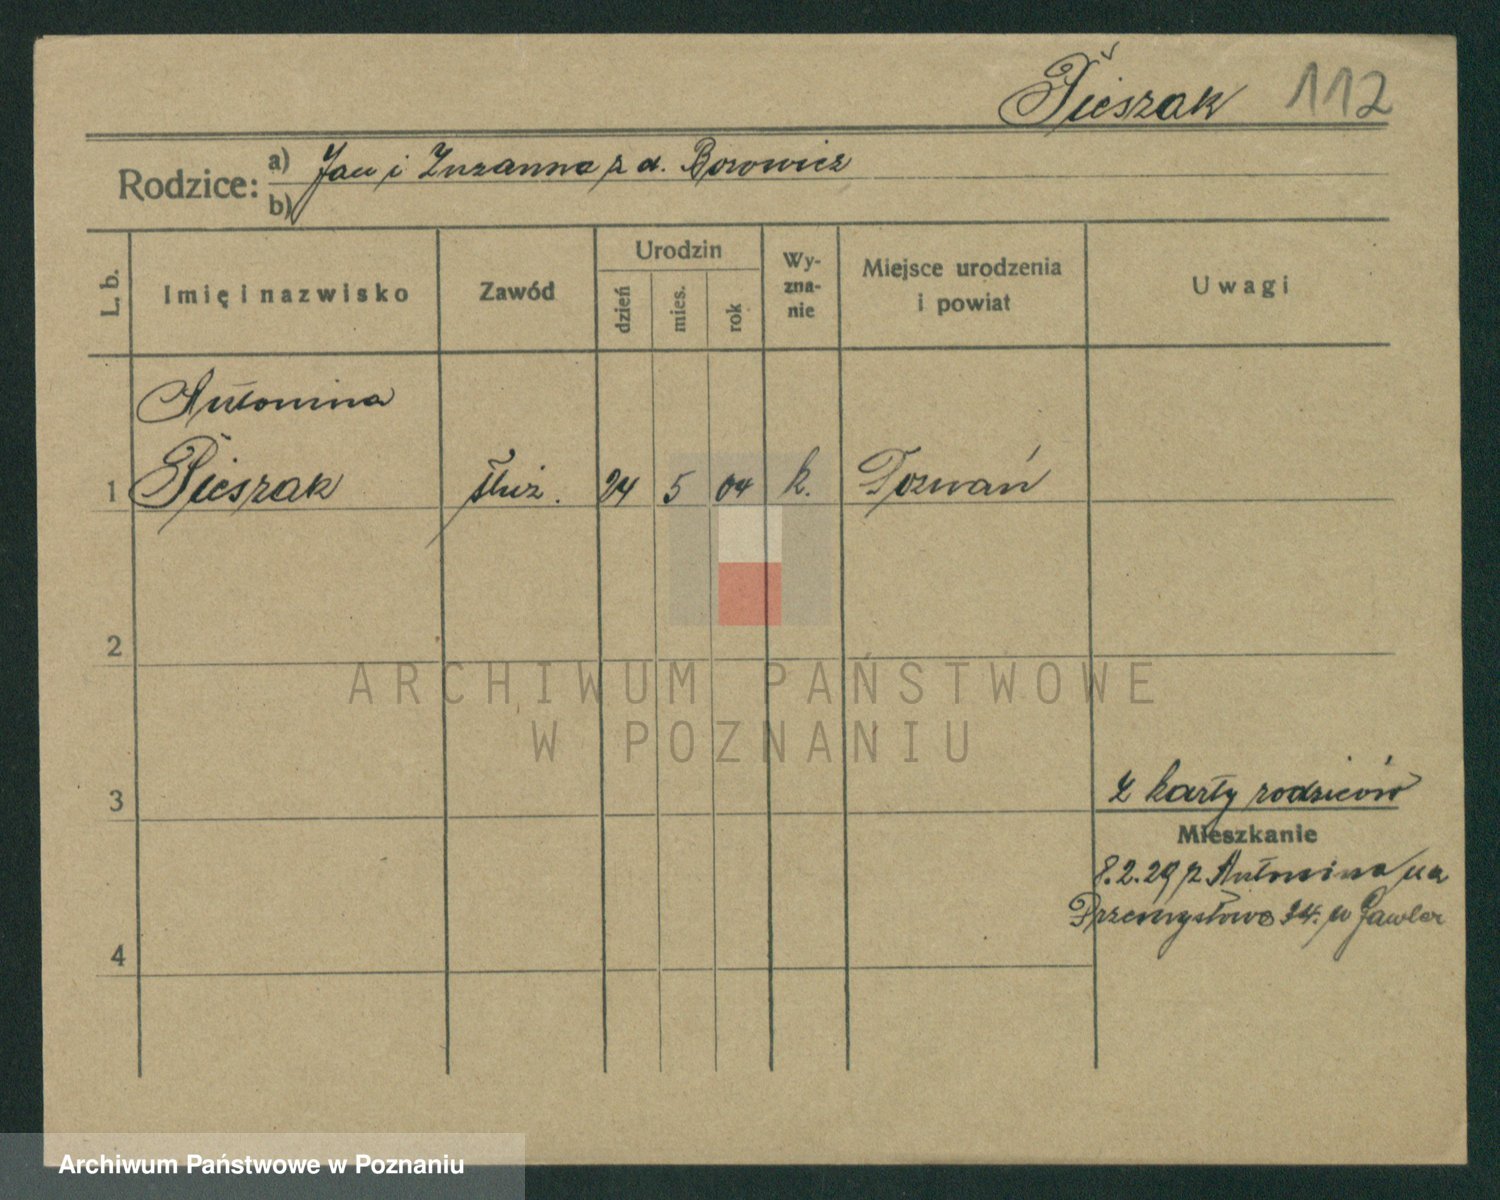 Pieszak 112
Rodzice: a) Jan i Zuzanna z d. Borowicz
b)
L. b.
Imię i nazwisko
Zawód
Urodzin
dzień
mies.
rok
Wy-
zna-
nie
Miejsce urodzenia
i powiat
Uwagi
Antonina
1 Pieszak służ. 24 5 04 k. Poznań
2
ARCHIWUM PAŃSTWOWE
W POZNANIU
3
z karty rodziców
Mieszkanie
8.2.29 Antonina na
Przemysłowa 34. w
4
Archiwum Państwowe w Poznaniu